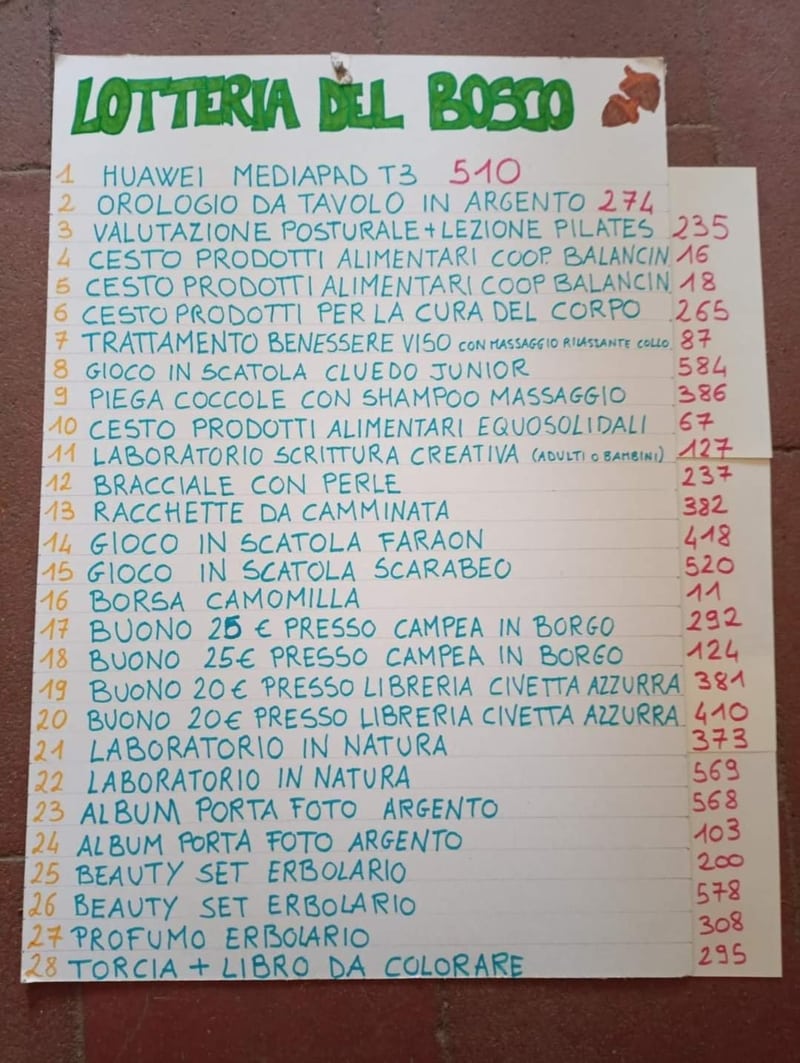 LOTTERIA DEL BOSCO
1 HUAWEI MEDIAPAD T3 510
2 OROLOGIO DA TAVOLO IN ARGENTO 274
3 VALUTAZIONE POSTURALE + LEZIONE PILATES 235
4 CESTO PRODOTTI ALIMENTARI COOP. BALANCIN 16
5 CESTO PRODOTTI ALIMENTARI COOP BALANCIN 18
6 CESTO PRODOTTI PER LA CURA DEL CORPO 265
7 TRATTAMENTO BENESSERE VISO CON MASSAGGIO RILASSANTE COLLO 87
8 GIOCO IN SCATOLA CLUEDO JUNIOR 584
9 PIEGA COCCOLE CON SHAMPOO MASSAGGIO 386
10 CESTO PRODOTTI ALIMENTARI EQUOSOLIDALI 67
11 LABORATORIO SCRITTURA CREATIVA (ADULTI O BAMBINI) 127
12 BRACCIALE CON PERLE 237
13 RACCHETTE DA CAMMINATA 382
14 GIOCO IN SCATOLA FARAON 418
15 GIOCO IN SCATOLA SCARABEO 520
16 BORSA CAMOMILLA 11
17 BUONO 25 € PRESSO CAMPEA IN BORGO 292
18 BUONO 25€ PRESSO CAMPEA IN BORGO 124
19 BUONO 20€ PRESSO LIBRERIA CIVETTA AZZURRA 381
20 BUONO 20€ PRESSO LIBRERIA CIVETTA AZZURRA 410
21 LABORATORIO IN NATURA 373
22 LABORATORIO IN NATURA 569
23 ALBUM PORTA FOTO ARGENTO 568
24 ALBUM PORTA FOTO ARGENTO 103
25 BEAUTY SET ERBOLARIO 200
26 BEAUTY SET ERBOLARIO 578
27 PROFUMO ERBOLARIO 308
28 TORCIA + LIBRO DA COLORARE 295